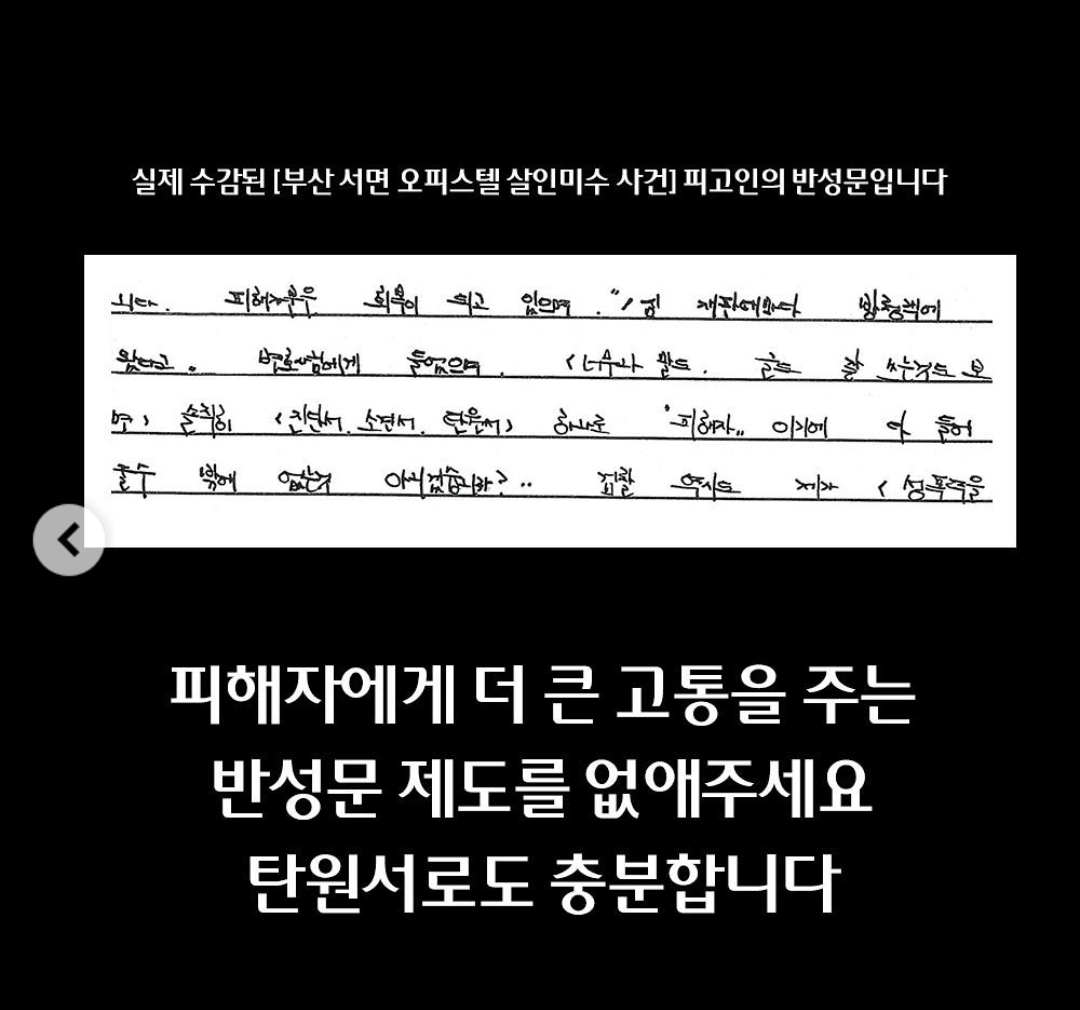 실제 수감된 [부산 서면 오피스텔 살인미수 사건] 피고인의 반성문입니다
니다. 피해자분은 회복이 되고 있으며. "1심 재판에마다 방청석에
왔다고. 변호사님에게 들었으며. <너무나 말도. 글도 잘 쓰는것도 보
면> 솔직히 <진단서. 소견서. 탄원서> 하나로 "피해자" 이기에 다 들어
줄수 밖에 없는것 아니겠습니까?.. 검찰 역시도 제가 <성폭력을
피해자에게 더 큰 고통을 주는
반성문 제도를 없애주세요
탄원서로도 충분합니다